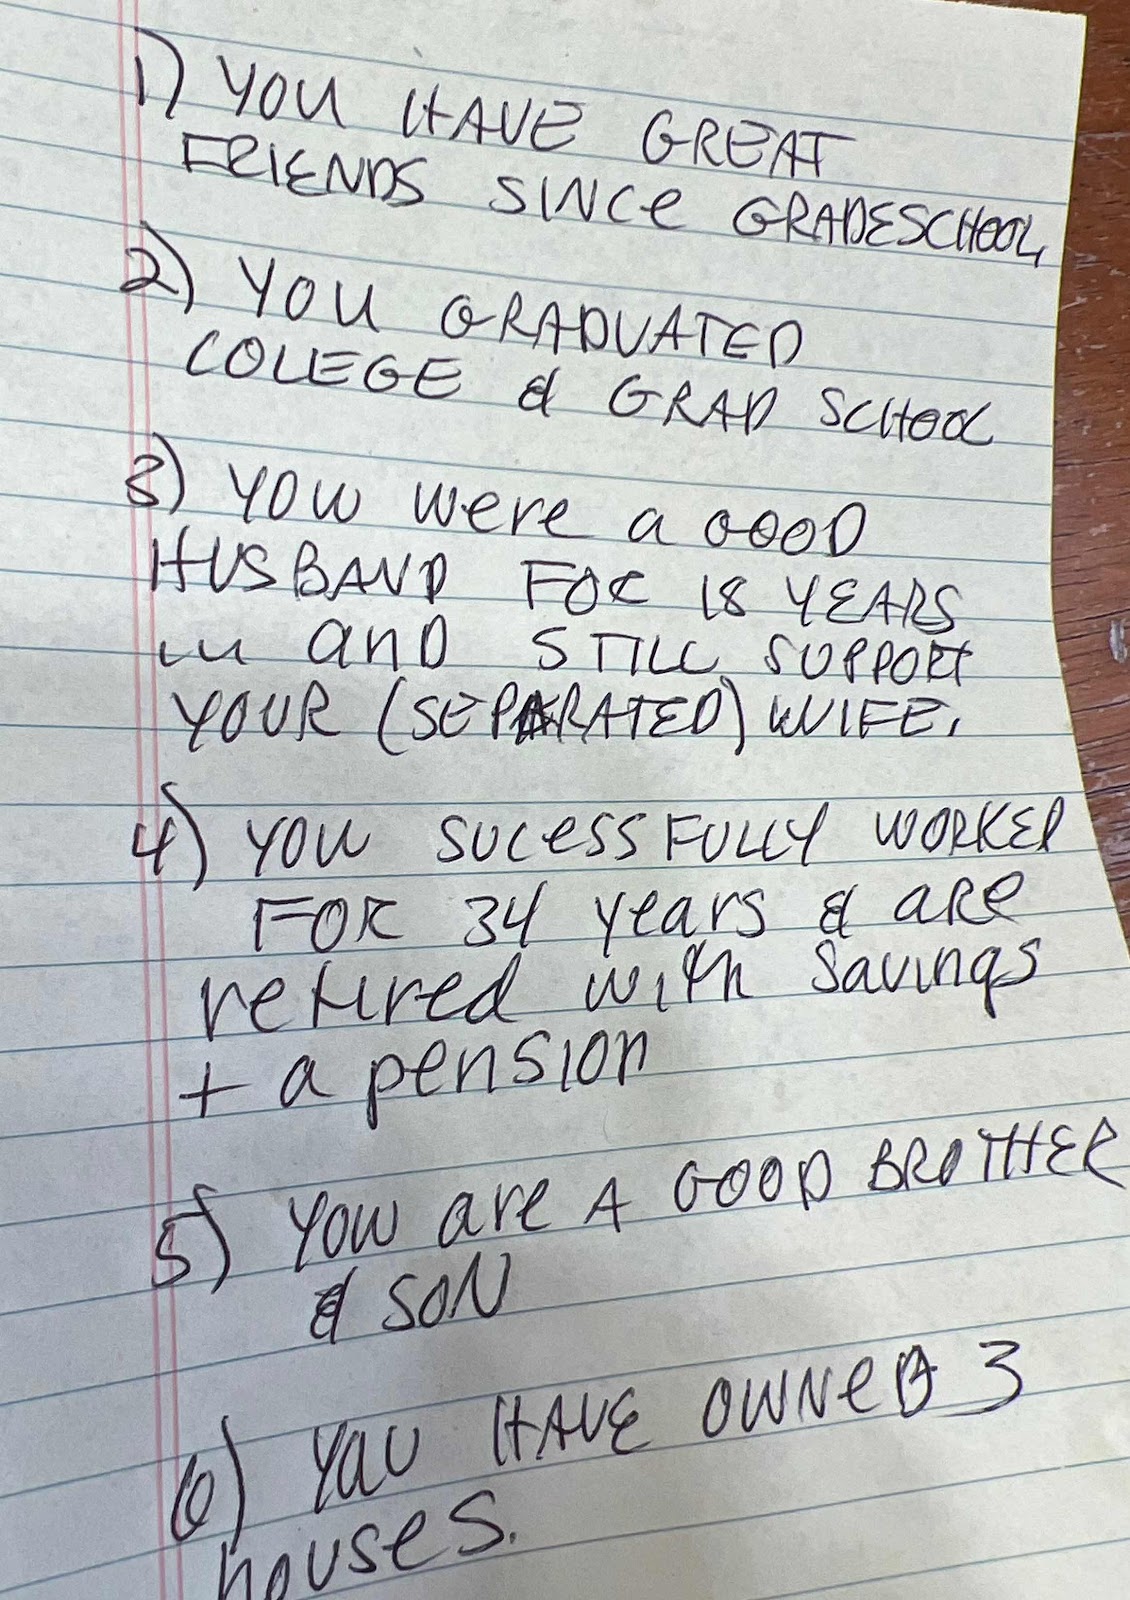 1) YOU HAVE GREAT
FRIENDS SINCE GRADESCHOOL
2) YOU GRADUATED
COLEGE & GRAD SCHOOL
3) YOU were a GOOD
HUSBAND FOR 18 YEARS
and STILL SUPPORT
YOUR (SEPARATED) WIFE.
4) YOU SUCESSFULLY WORKED
FOR 34 years & are
retired with savings
+ a pension
5) YOU are A GOOD BROTHER
& SON
6) YOU HAVE OWNED 3
houses.